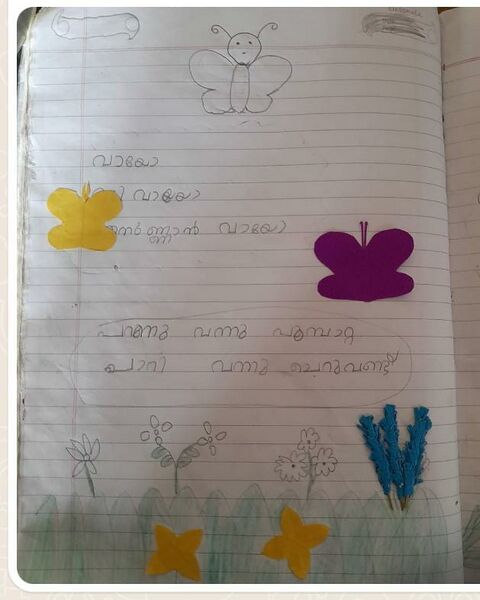 വായോ
വായോ
വായോ
പറന്നു വന്നു പൂമ്പാറ്റ
പാറി വന്നു ചെറുവണ്ട്